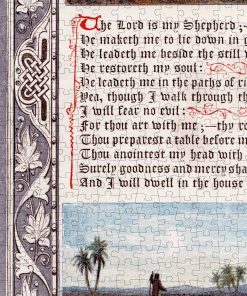 The Lord is my Shepherd ;-
He maketh me to lie down in
He leadeth me beside the still
He restoreth my soul:
He leadeth me in the paths of ri
Yea, though I walk through th
I will fear no evil:
For thou art with me ;-thy
Thou preparest a table before m
Thou anointest my head with
Surely goodness and mercy sha
And I will dwell in the house